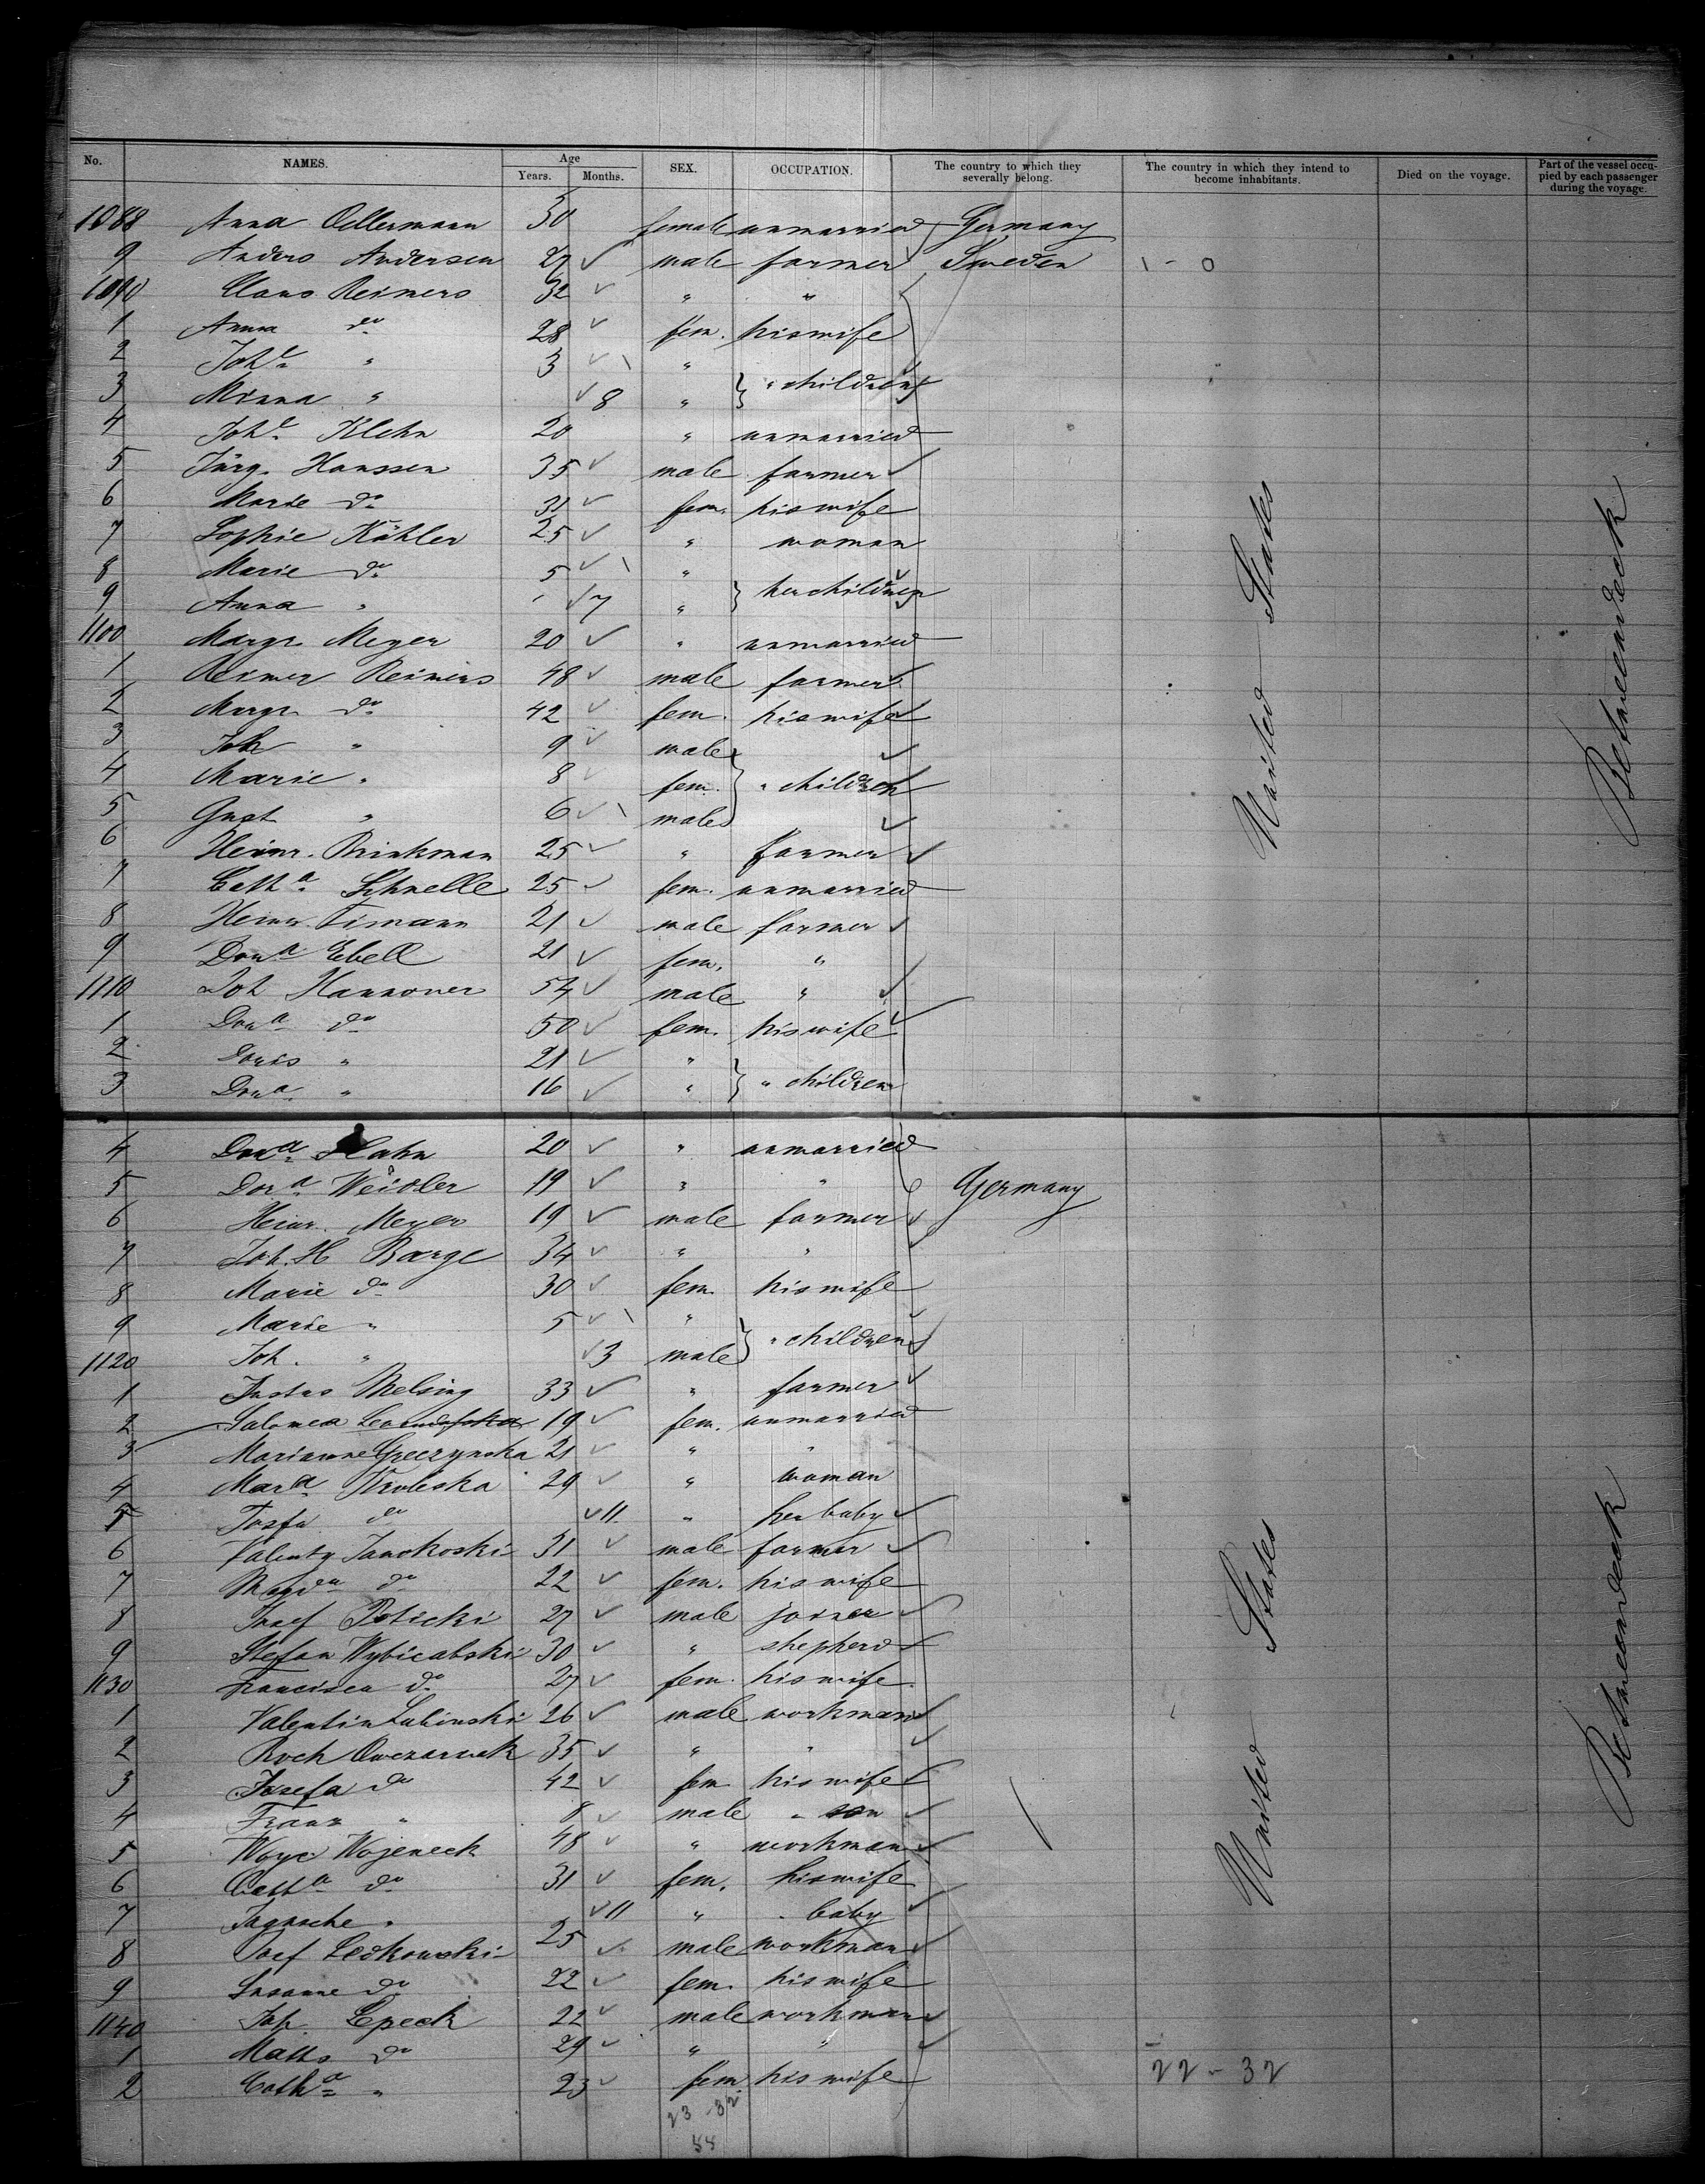 No. NAMES. Age Years. Months. SEX. OCCUPATION. The country to which they severally belong. The country in which they intend to become inhabitants. Died on the voyage. Part of the vessel occupied by each passenger during the voyage.
1088 Anna Oellermann 30 female unmarried Germany
9 Anders Andersen 27 ✓ male farmer Sweden 1 - 0
1090 Claus Reimers 32 ✓ " "
1 Anna do 28 ✓ fem. his wife
2 Joh. " 3 ✓ \ "
3 Minna " ✓ 8 " } " children
4 Joh. Klehn 20 " unmarried
5 Jürg. Hanssen 35 ✓ male farmer ✓
6 Marie do 31 ✓ fem. his wife
7 Sophie Köhler 25 ✓ " woman
8 Marie do 5 ✓ \ " ✓
9 Anna " ✓ 7 " } her children
1100 Margr. Meyer 20 ✓ " unmarried
1 Reimer Reimers 48 ✓ male farmer ✓
2 Margr. do 42 ✓ fem. his wife ✓
3 Joh " 9 ✓ male ✓
4 Marie " 8 ✓ fem. } " children
5 Gust " 6 ✓ \ male ✓
6 Heinr. Brinkman 25 ✓ " farmer ✓
7 Cath a Schnelle 25 ✓ fem. unmarried
8 Heinr. Timann 21 ✓ male farmer ✓
9 Dor a Ebell 21 ✓ fem. "
1110 Joh Hannover 54 ✓ male " ✓
1 Dor a do 50 ✓ fem. his wife ✓
2 Doris " 21 ✓ "
3 Dor a " 16 ✓ " } " children
4 Dor a Hahn 20 ✓ " unmarried
5 Dor a Weidler 19 ✓ " " Germany
6 Heinr. Meyer 19 ✓ male farmer ✓
7 Joh. H Barge 34 ✓ " " ✓
8 Marie do 30 ✓ fem. his wife
9 Marie " 5 ✓ \ " ✓
1120 Joh. " ✓ 3 male } " children
1 Justus Melsing 33 ✓ " farmer ✓
2 Salomea 19 ✓ fem. unmarried
3 Marianne 21 ✓ " "
4 Mar a 29 ✓ " woman
5 do ✓ 11 " her baby ✓
6 Valenty Janokoski 31 ✓ male farmer ✓
7 do 22 ✓ fem. his wife
8 Josef Poticki 27 ✓ male joiner ✓
9 Stefan Wybicabski 30 ✓ " shepherd ✓
1130 Francisca do 27 ✓ fem. his wife
1 Valentin Lubinski 26 ✓ male workman ✓
2 Roch Owczarsek 35 ✓ " " ✓
3 Josefa do 42 ✓ fem his wife ✓
4 Franz " 8 ✓ male " son ✓
5 Woyc Wojeneck 48 ✓ " workman ✓
6 Cath a do 31 ✓ fem. his wife
7 " ✓ 11 " " baby ✓
8 Josf Ledkowski 25 ✓ male workman ✓
9 Susanne do 22 ✓ fem. his wife
1140 Joh. Lpeck 22 ✓ male workman ✓
1 Matts do 29 ✓ " " ✓
2 Cath a " 23 ✓ fem. his wife 22 - 32
23 - 32
55
United States
Betweendeck
United States
Betweendeck